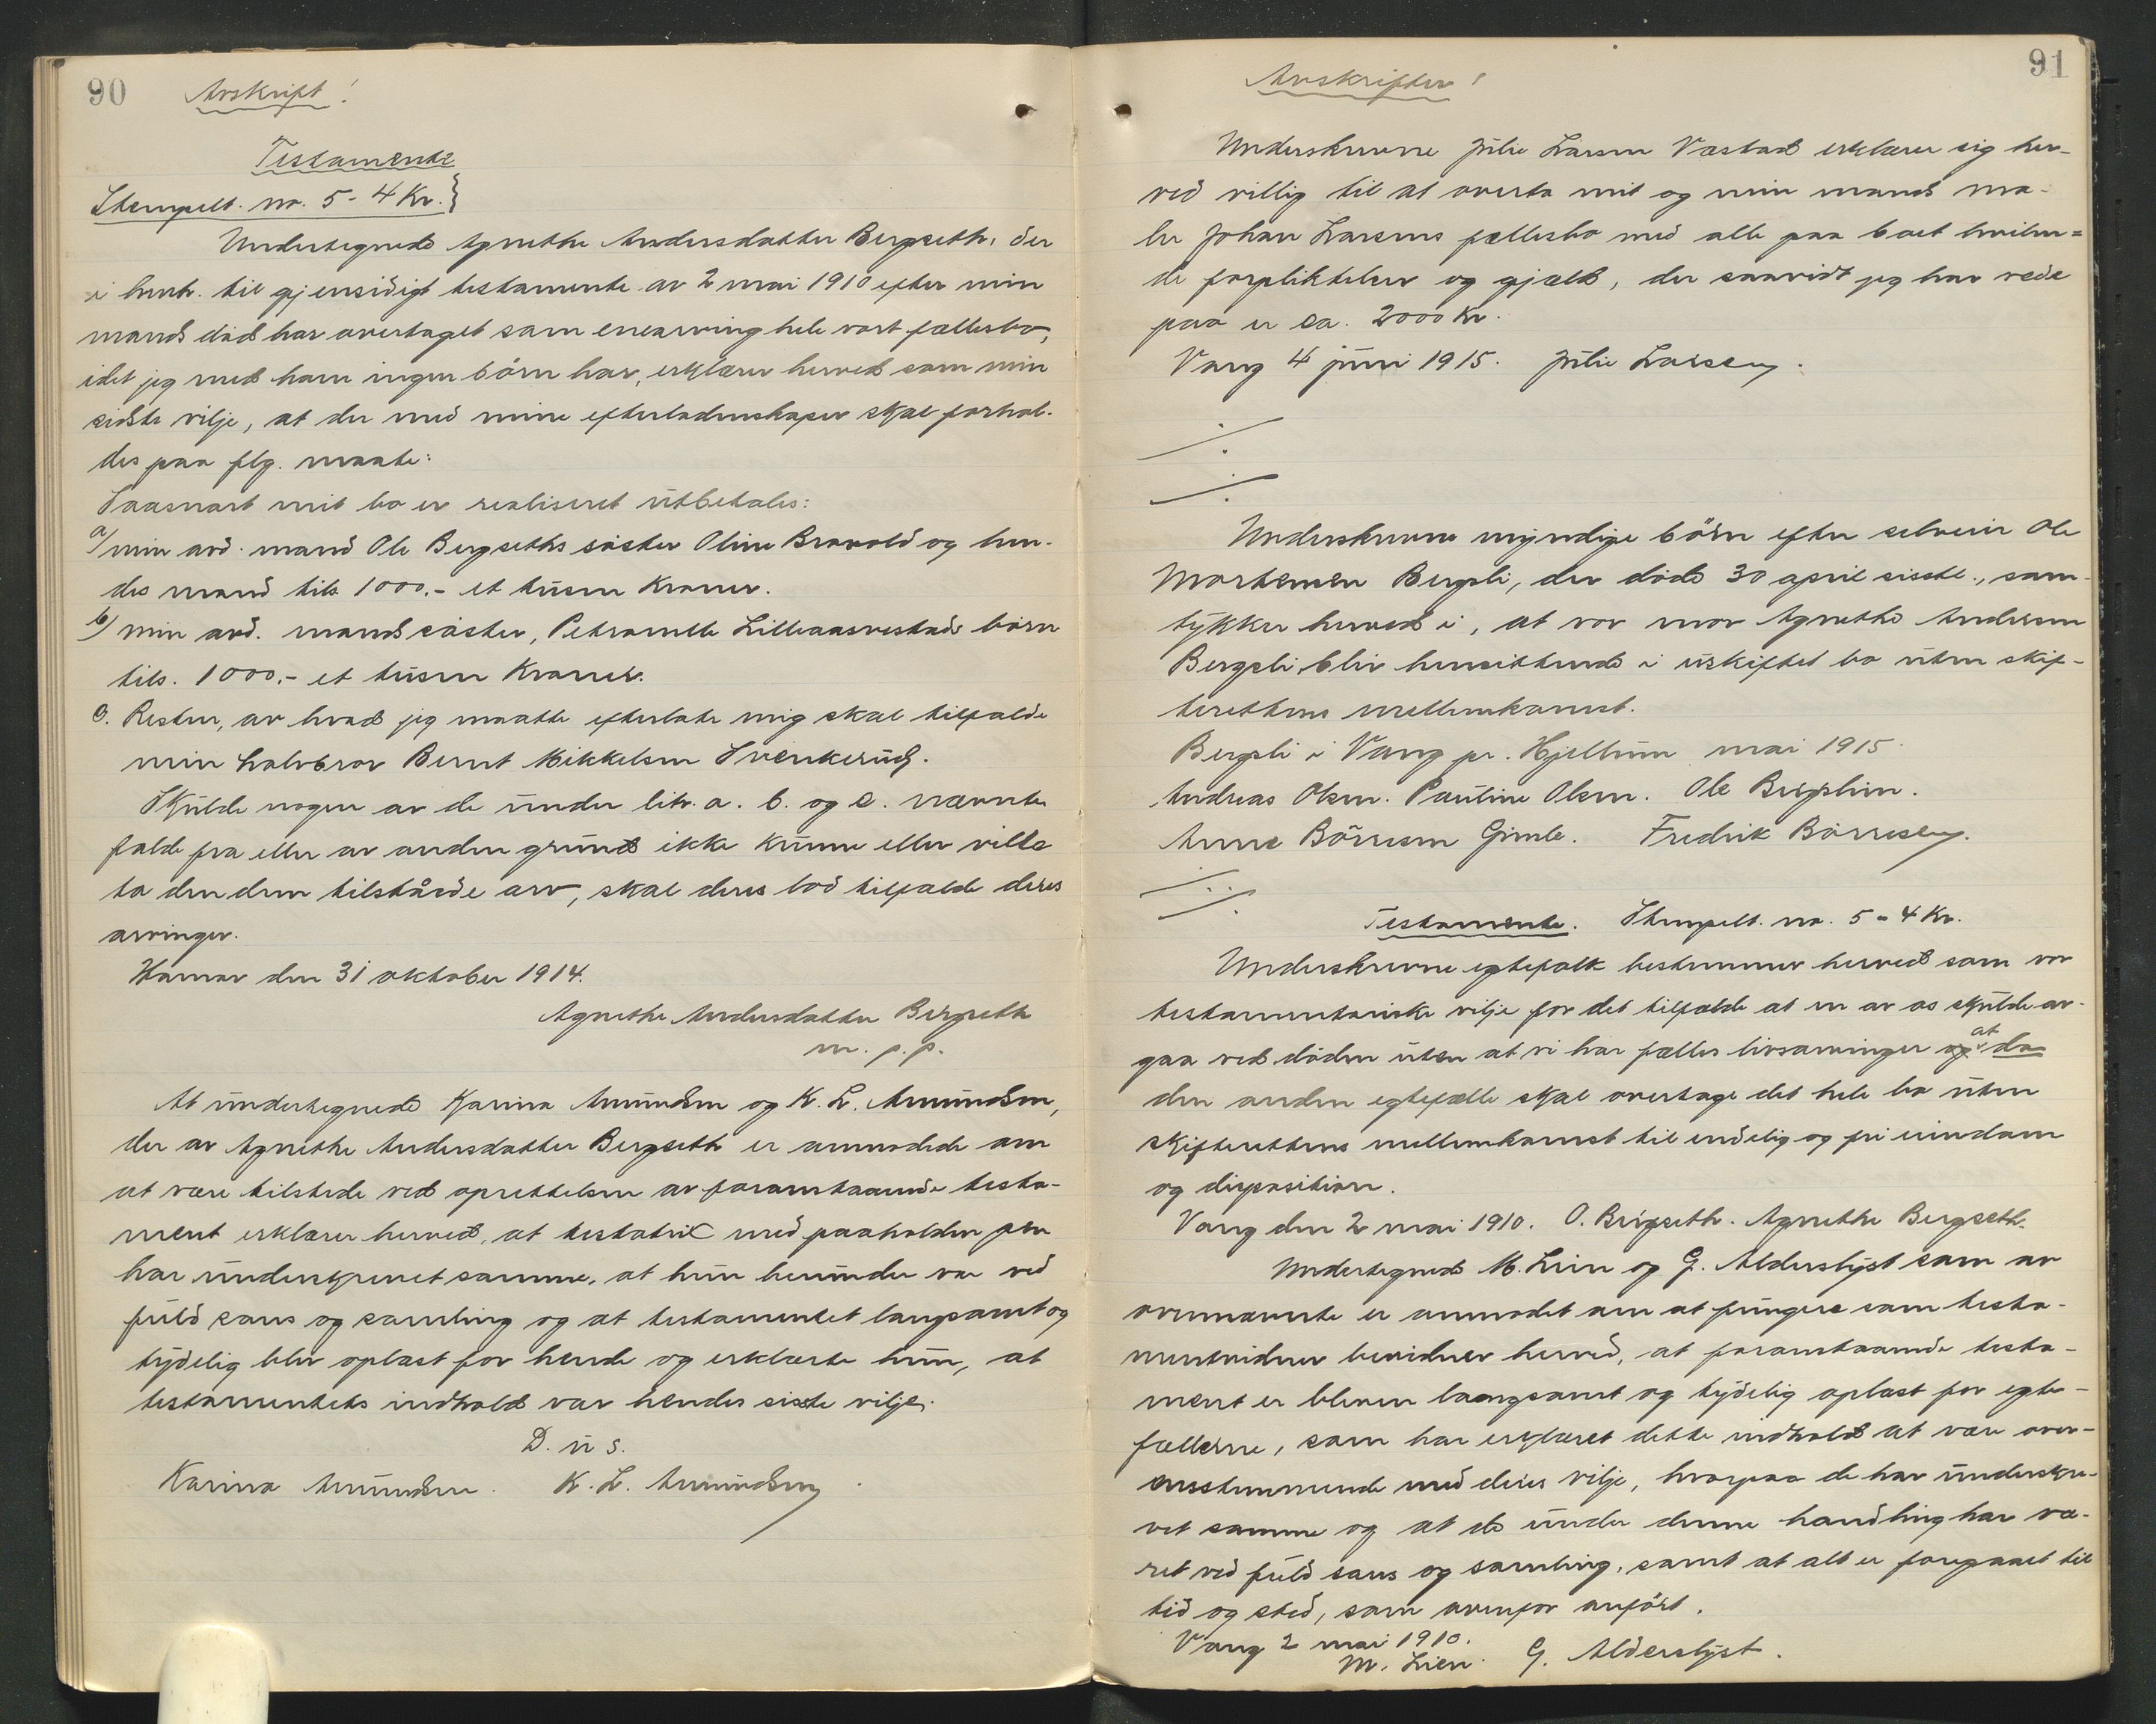 90
Avskrift!
Testamente
Stempelt. no. 5 - 4 Kr.}
Undertegnede Agnethe Andersdatter Bergseth, der
i henh. til gjensidigt testamente av 2 mai 1910 efter min
mands död har overtaget som enearving hele vort fællesbo,
idet jeg med ham ingen börn har, erklærer herved som min
sidste vilje, at der med mine efterladenskaper skal forhol-
des paa flg. maate:
Saasnart mit bo er realiseret utbetales:
a/ min avd. mand Ole Bergseths söster Oline Bravold og hen-
des mand tils 1000.- et tusen Kroner.
b/ min avd. mands söster, Petronelle Lilleaasvestads börn
tils. 1000.- et tusen Kroner.
c. Resten, av hvad jeg maatte efterlate mig skal tilfalde
min halvbror Bernt Mikkelsen Svenkerud.
Skulde nogen av de under litr. a. b. og c. nævnte
falde fra eller av anden grund ikke kunne eller ville
ta den dem tilståede arv, skal deres lod tilfalde deres
arvinger.
Hamar den 31 oktober 1914.
Agnethe Andersdatter Bergseth
m. p. p.
At undertegnede Karina Amundsen og K. L. Amundsen,
der av Agnethe Andersdatter Bergseth er anmodede om
at være tilstede ved oprettelsen av foranstaaende testa-
ment erklærer herved, at testatrix med paaholden pen
har underskrevet samme, at hun herunder var ved
fuld sans og samling og at testamentet langsomt og
tydelig blev oplæst for hende og erklærte hun, at
testamentets indhold var hendes siste vilje.
D. u s.
Karina Amundsen. K. L. Amundsen
91
Avskrifter!
Underskrevne Julie Larsen Vastad erklærer sig her-
ved villig til at overta mit og min mands ma-
ler Johan Larsens fællesbo med alle paa boet hvilen=
de forpliktelser og gjæld, der saavidt jeg har rede
paa er ca. 2000 Kr.
Vang 4 juni 1915. Julie Larsen.
Underskrevne myndige börn efter selveier Ole
Mortensen Bergsli, der döde 30 april sisstl., sam-
tykker herved i, at vor mor Agnethe Andersen
Bergsli blir hensittende i uskiftet bo uten skif-
terettens mellemkomst.
Bergsli i Vang pr. Hjellum mai 1915.
Andreas Olsen. Pauline Olsen. Ole Bergslien.
Anne Börresen Gimle. Fredrik Börresen.
Testamente. Stempelt. no. 5 - 4 Kr.
Underskrevne egtefolk bestemmer herved som vor
testamentariske vilje for det tilfælde at en av os skulde av-
gaa ved döden uten at vi har fælles livsarvinger og at da
den anden egtefælle skal overtage det hele bo uten
skifterettens mellemkomst til endelig og fri eiendom
og disposition.
Vang den 2 mai 1910. O. Bergseth. Agnethe Bergseth.
Undertegnede M. Lien og G. Alderslyst som av
ovennævnte er anmodet om at fungere som testa-
mentvidner bevidner herved, at foranstaaende testa-
ment er bleven langsomt og tydelig oplæst for egte-
fællerne, som har erklæret dette indhold at være over-
ensstemmende med deres vilje, hvorpaa de har underskre-
vet samme og at de under denne handling har væ-
ret ved fuld sans og samling, samt at alt er foregaaet til
tid og sted, som ovenfor anfört.
Vang 2 mai 1910.
M. Lien. G. Alderslyst.